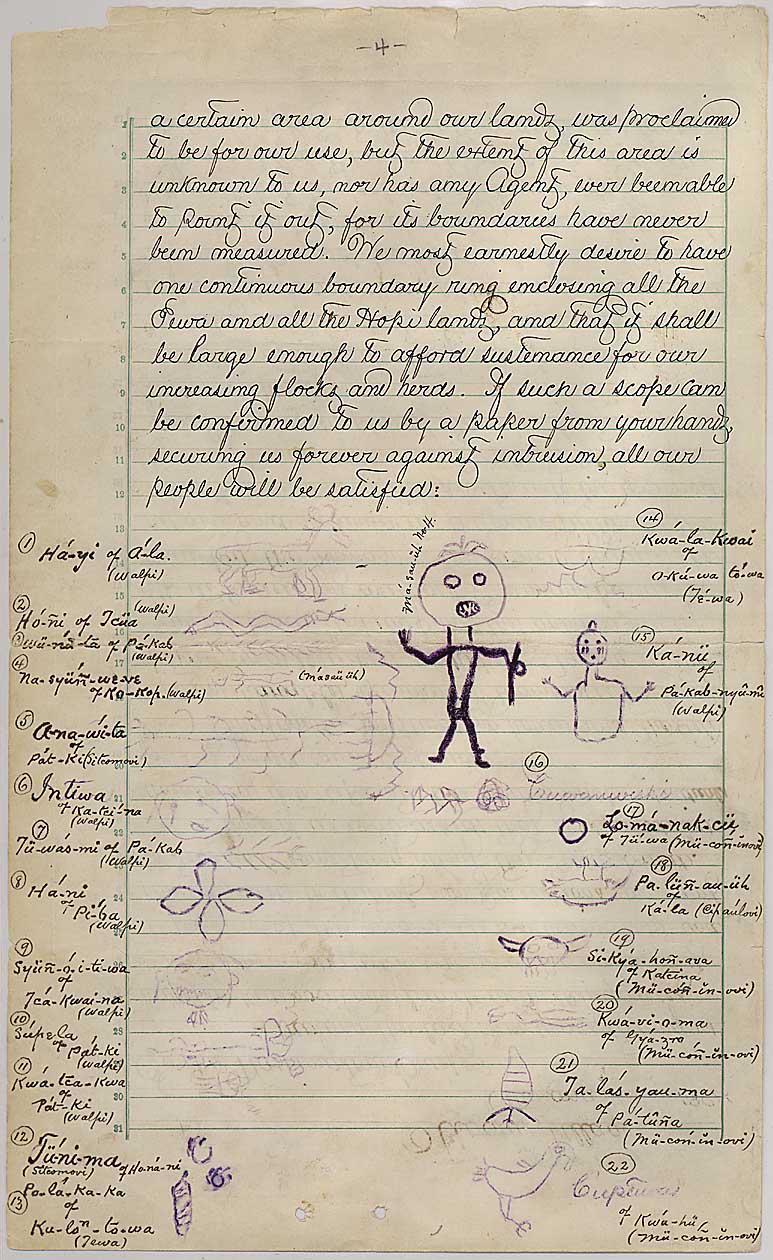 -4-
a certain area around our lands, was proclaimed
to be for our use, but the extent of this area is
unknown to us, nor has any Agent, ever been able
to point it out, for its boundaries have never
been measured. We most earnestly desire to have
one continuous boundary ring enclosing all the
Tewa and all the Hopi lands, and that it shall
be large enough to afford sustenance for our
increasing flocks and herds. If such a scope can
be confirmed to us by a paper from your hands,
securing us forever against intrusion, all our
people will be satisfied:
1 Há-yi of Á-la.
(Walpi)
2 (Walpi)
Hó-ñi of Tcüa
3 of Pá-kab
(Walpi)
4 Na-syüñ-we-ve
of Ko-kop. (Walpi)
(másauüh)
5 A-na-wi-ta
of
Pát-ki (Sitcomovi)
6 Intiwa
of Ka-tci-na
(Walpi)
7
Tü-wás-mi of Pá-kab
(Walpi)
8
Há-ni
of Pí-ba
(Walpi)
9
Syüñ-ó-i-ti-wa
of
Tcá-kwai-na
(Walpi)
10
Súpe-la
of Pát-ki
(Walpi)
11
Kwá-tca-kwa
of
Pát-ki
(Walpi)
12
Tü-ni-ma
(Sitcomovi) of Ho-ná-ni
13 Po-lá-ka-ka
of
Ku-loⁿ-to-wa
(Tewa)
14
Kwá-la-kwai
of
O-kú-wa tó-wa
(Té-wa)
15
Ká-nü
of
Pá-kab-nyû-mû
(Walpi)
16
17
Lo-má-nak-cü
of Tü-wa (Mü-coñ-inovi)
18
Pa-lüñ-au-üh
of
Ká-la (Cipaúlovi)
19
Si-kyá-hoñ-ava
of Katcina
(Mü-cóñ-ĭn-ovi)
20
Kwá-vi-o-ma
of Gyá-zro
(Mü-cóñ-ĭn-ovi)
21
Ta-lás-yau-ma
of Pá-tûña
(Mü-coñ-ĭn-ovi)
22
of Kwá-hü
(Mü-coñ-ĭn-ovi)